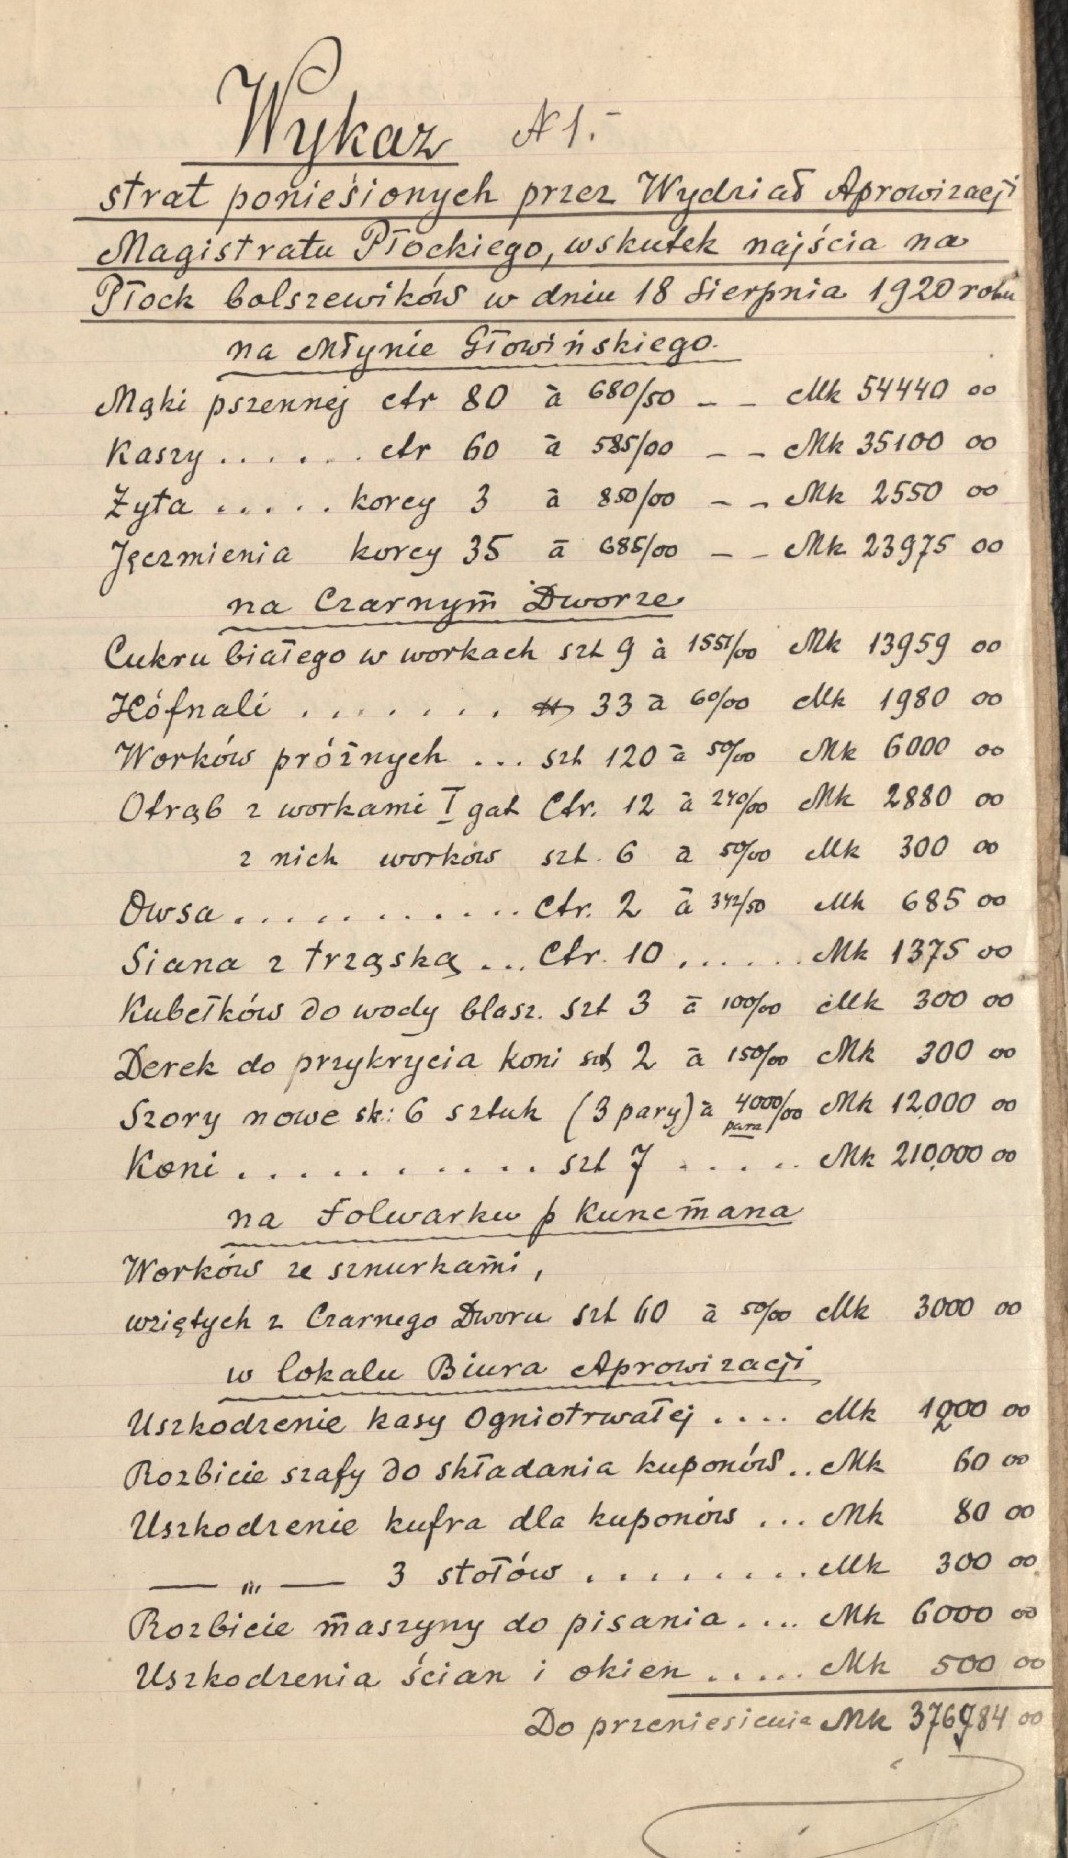 Wykaz N 1.-
strat poniesionych przez Wydział Aprowizacji
Magistratu Płockiego, wskutek najścia na
Płock bolszewików w dniu 18 Sierpnia 1920 roku
na Młynie Głowińskiego.
Mąki pszennej ctr 80 à 680/50 – – Mk 54440 00
Kaszy . . . . . . ctr 60 à 585/00 – – Mk 35100 00
Żyta . . . . . korcy 3 à 850/00 – – Mk 2550 00
Jęczmienia korcy 35 à 685/00 – – Mk 23975 00
na Czarnym Dworze
Cukru białego w workach szt 9 à 1551/00 Mk 13959 00
Hófnali . . . . . . . 33 à 60/00 Mk 1980 00
Worków próżnych . . . szt 120 à 50/00 Mk 6000 00
Otrąb z workami I gat Ctr. 12 à 240/00 Mk 2880 00
z nich worków szt. 6 à 50/00 Mk 300 00
Owsa . . . . . . . . . . . Ctr. 2 à 342/50 Mk 685 00
Siana z trząską . . . Ctr. 10 . . . . . . Mk 1375 00
Kubełków do wody blasz. szt 3 à 100/00 Mk 300 00
Derek do przykrycia koni szt 2 à 150/00 Mk 300 00
Szory nowe sk: 6 sztuk (3 pary) à 4000/00 Mk 12,000 00
para
Koni . . . . . . . . . . . szt 7 . . . . . Mk 210,000 00
na Folwarku p Kuncmana
Worków ze sznurkami,
wziętych z Czarnego Dworu szt 60 à 50/00 Mk 3000 00
w lokalu Biura Aprowizacji
Uszkodzenie kasy Ogniotrwałej . . . . Mk 1200 00
Rozbicie szafy do składania kuponów . . Mk 60 00
Uszkodzenie kufra dla kuponów . . . Mk 80 00
— „ — 3 stołów . . . . . . . . Mk 300 00
Rozbicie maszyny do pisania . . . . Mk 6000 00
Uszkodzenia ścian i okien . . . . . Mk 500 00
Do przeniesienia Mk 376984 00